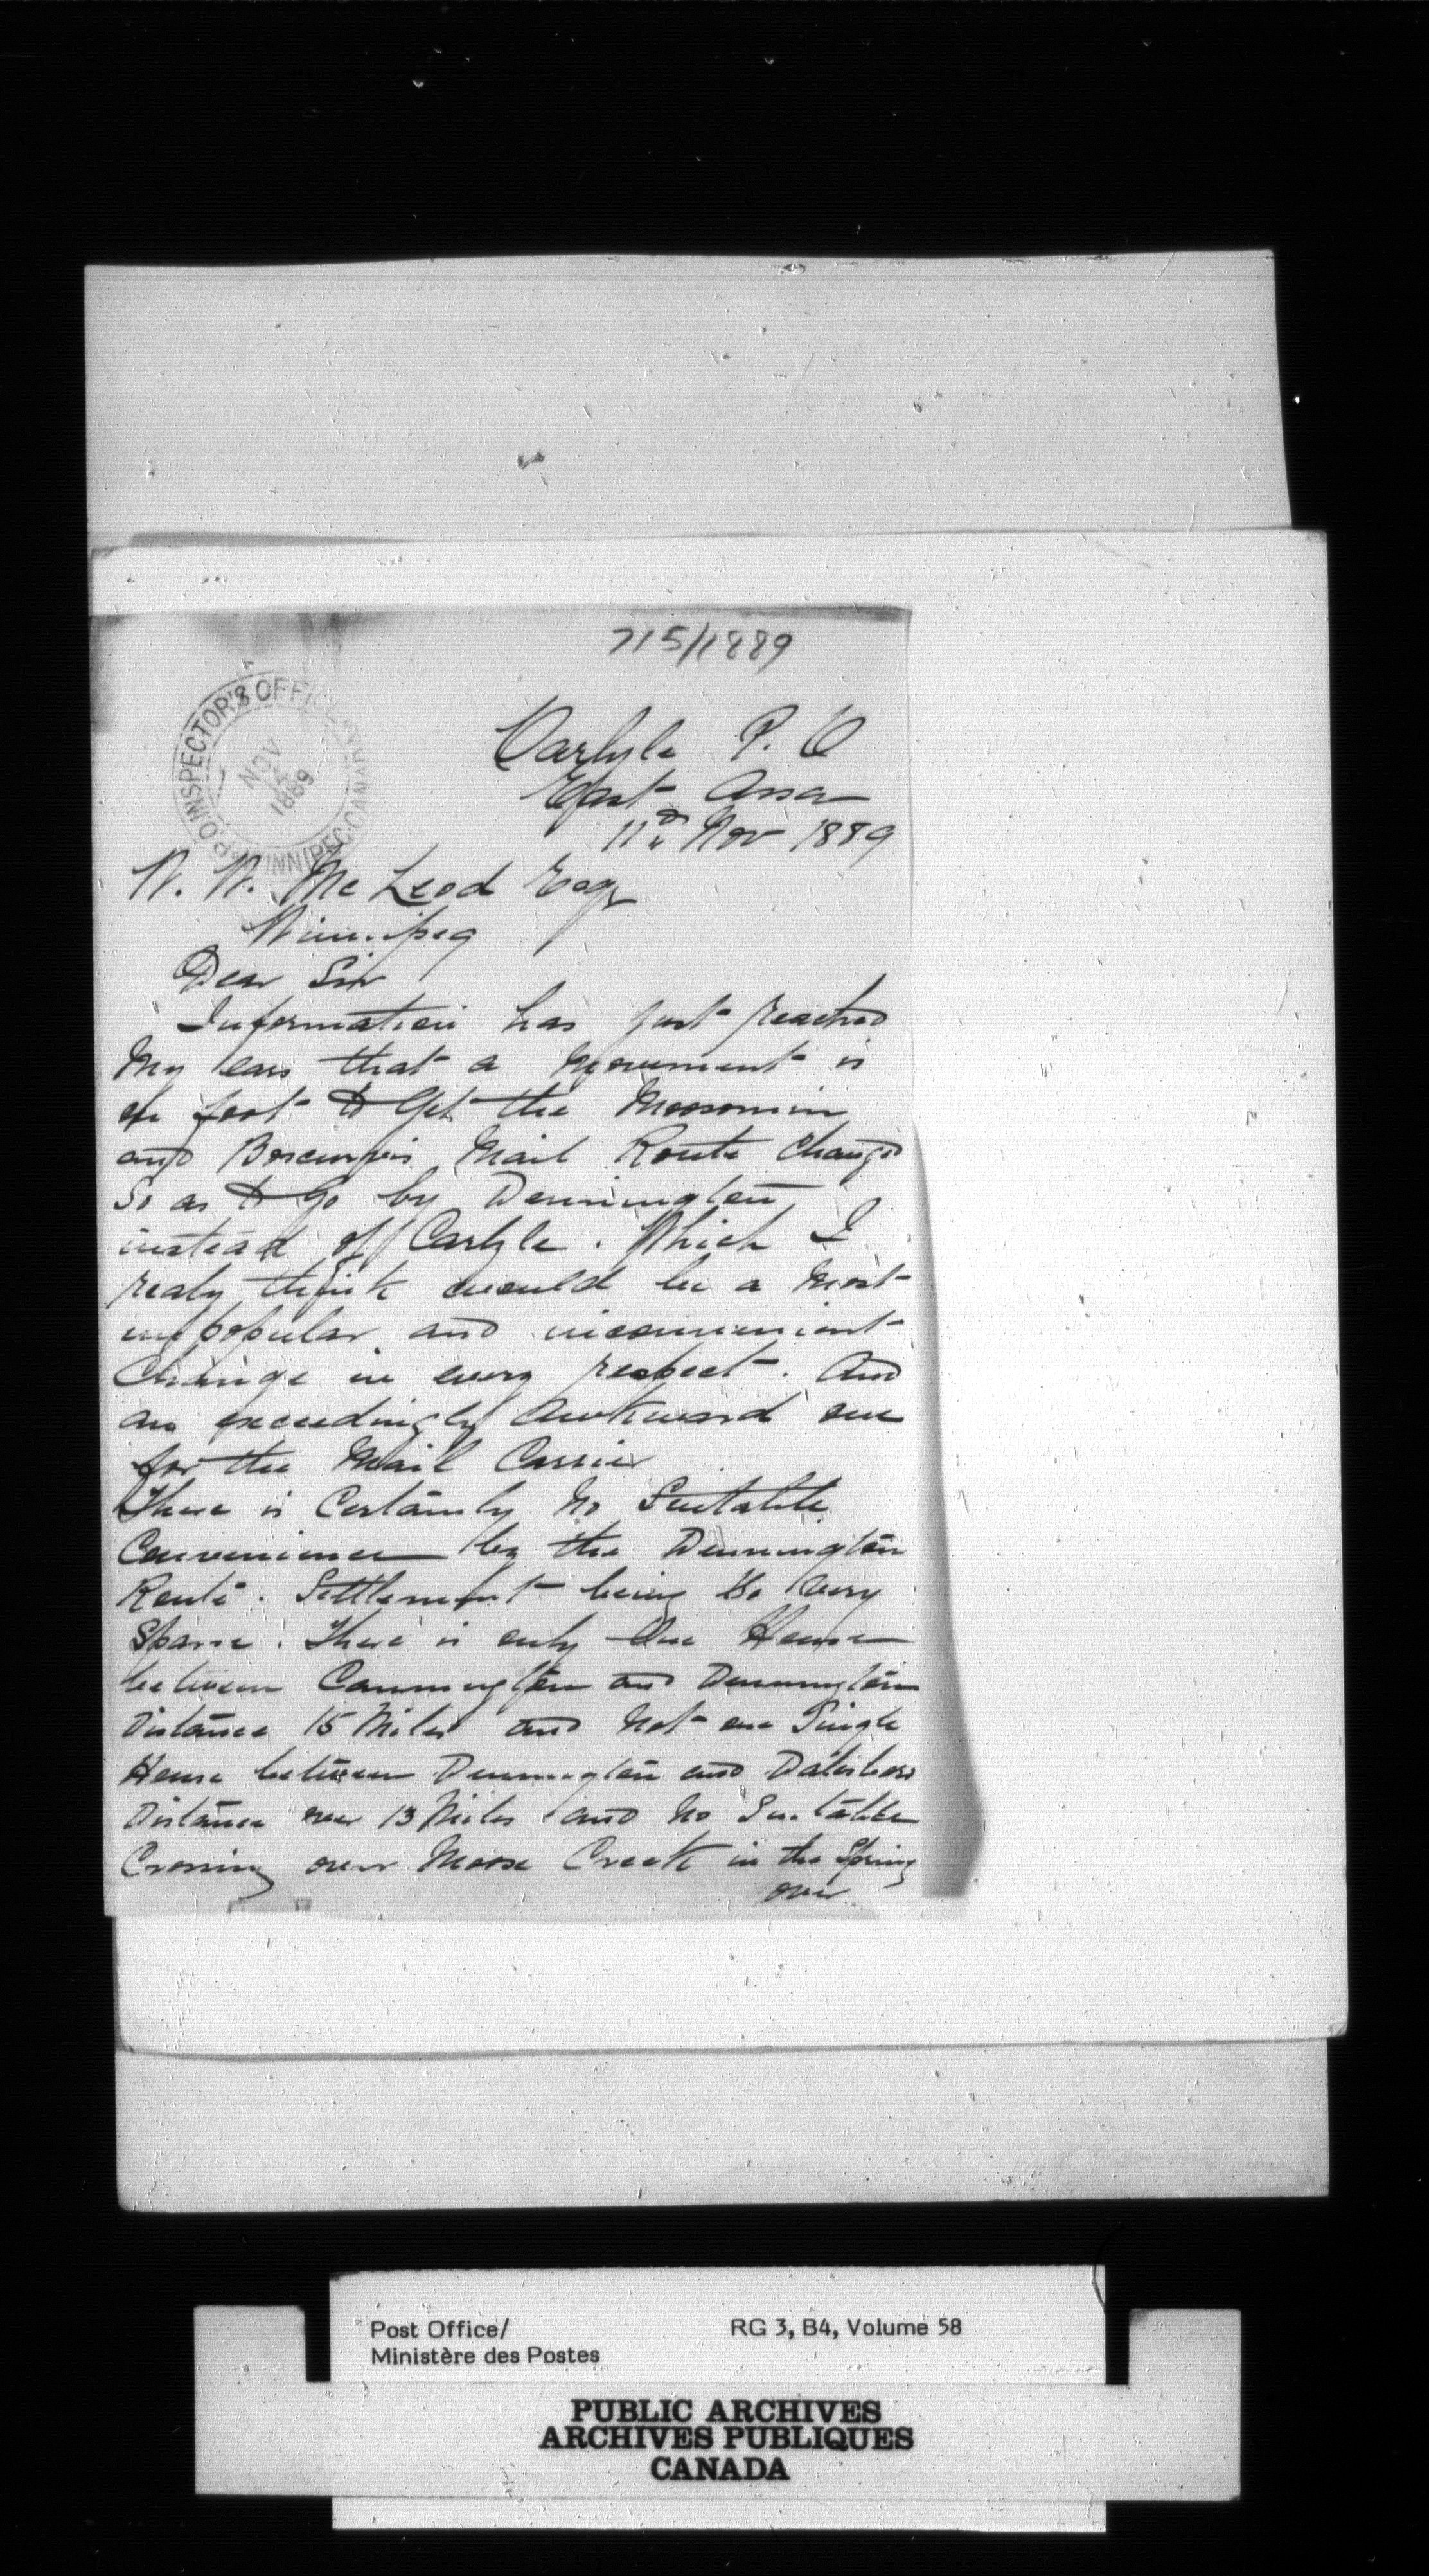 715/1889
P.O. INSPECTOR'S OFFICE
WINNIPEG. CANADA
NOV
1889
Carlyle P. O
East Assa
11th Nov 1889
W. W. McLeod Esqr
Winnipeg
Dear Sir
Information has just reached
My ears that a Movement is
on foot to Get the Moosomin
and Boscurvis Mail Route Changed
So as to Go by Dennington
instead of Carlyle. Which I
realy think would be a Most
unpopular and inconvenient
Change in every respect. And
an exceedingly Awkward one
for the Mail Carrier
There is Certainly No Suitable
Convenience by the Dennington
Route. Settlement being So Very
Sparse. There is only One House
between Cannington and Dennington
Distance 15 Miles and Not one Single
House between Dennington and Dalesboro
Distance over 13 Miles and No Suitable
Crossing over Moose Creek in the Spring
over
Post Office/
Ministère des Postes
RG 3, B4, Volume 58
PUBLIC ARCHIVES
ARCHIVES PUBLIQUES
CANADA